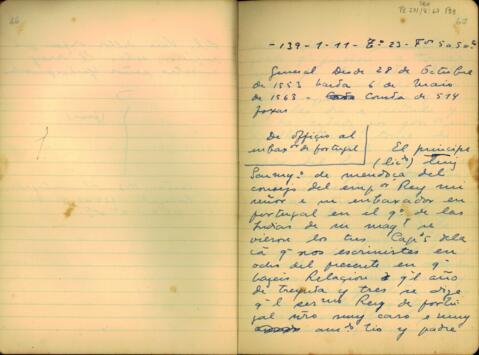 46
60
-139-1-11-Tº 23-Fº 50 50º
General Desde 28 de Octubre
de 1553 hasta 6 de Maio
de 1563 - Consta de 514
foxas
De officio al
embaxºr de portugal
El principe
(licdo) Luis
Sarmyº de mendoça del
consejo del empor Rey mi
señor e su embaxador en
portugal en el qº de las
Indias de su magt se
vieron los tres Capºs de la
cª q nos escrivistes en
ocho del presente en q
hazeis Relacion q el año
de treynta y tres se dize
q el sermo Rey de portu
gal nro muy caro e muy
amdo tio y padre